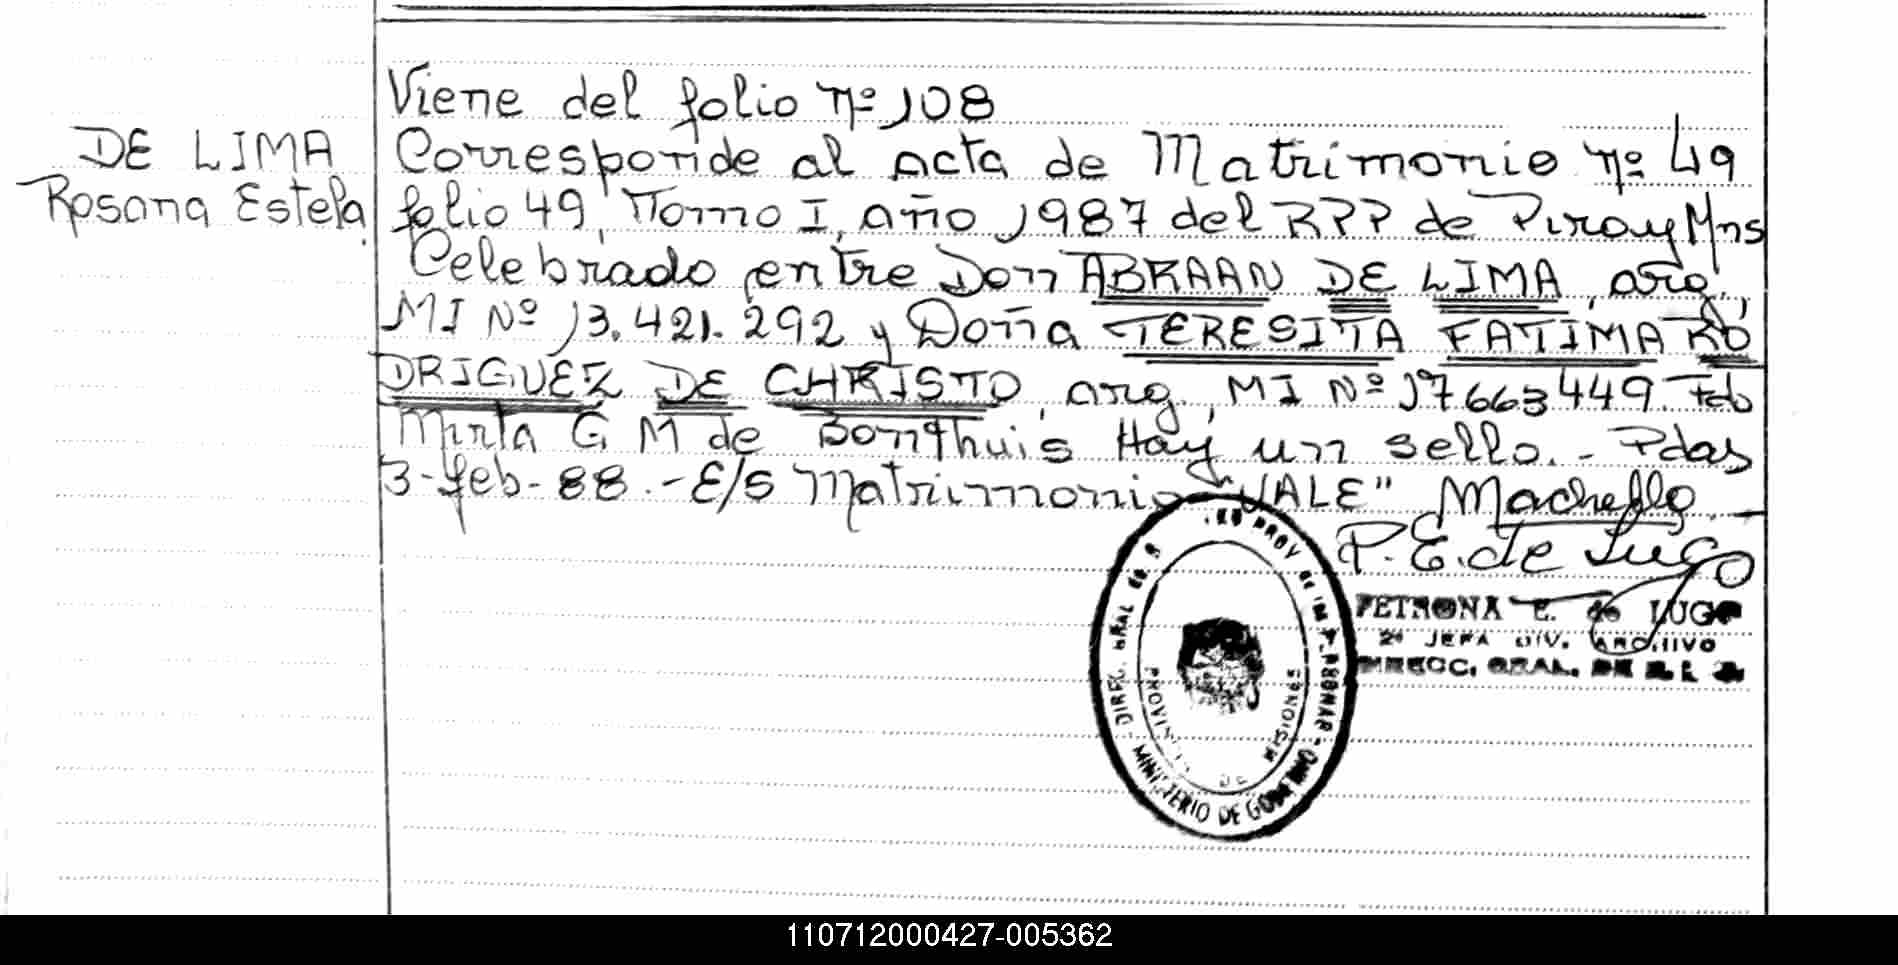 Viene del folio Nº 108
DE LIMA
Rosana Estela
Corresponde al acta de Matrimonio Nº 49
folio 49, Tomo I, año 1987 del RPP de Piray Mns
Celebrado entre Don ABRAAN DE LIMA, arg,
MI Nº 13.421.292 y Doña TERESITA FATIMA RO
DRIGUEZ DE CHRISTO, arg, MI Nº 17663449. Fdo
Mirta G M de Bonthuis Hay un sello. - Pdas
3-feb-88.- E/S Matrimonio "VALE"
P.E. de Lugo
PETRONA E. de LUGO
2ª JEFA DIV. ARCHIVO
DIRECC. GRAL. DE
DIREC. GRAL de PROV de PERSONAS - MINISTERIO DE GOBIERNO
PROVINCIA DE MISIONES
110712000427-005362